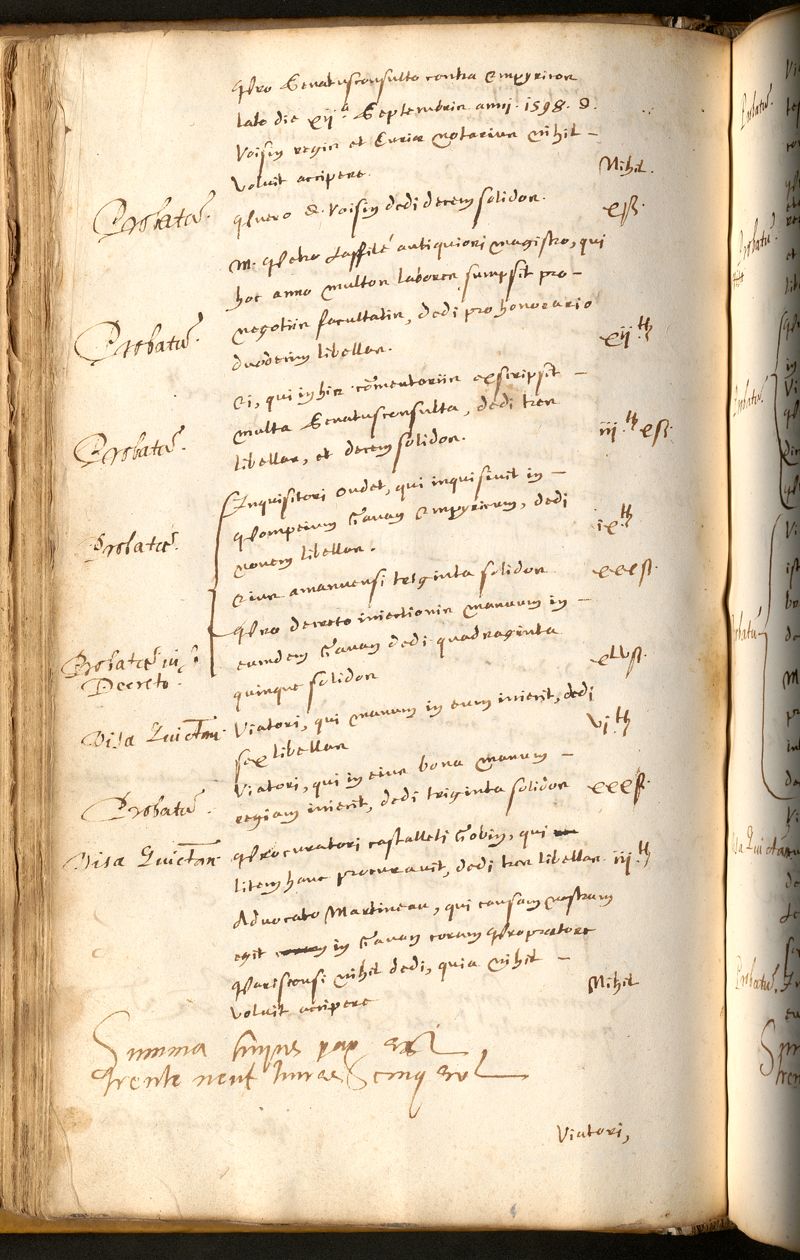 Pro Senatusconsulto contra Empyricos
lato die xij.a Septembris anni 1598. D.
Voisin regis et Curiae notarius nihil –
voluit accipere. Nihil.
Probatur. Puero D. Voisin dedi decem solidos. xß.
M. Petro Laffilé antiquiori magistro, qui
hoc anno multos labores sumpsit pro –
Probatur. negotiis facultatis, dedi pro honorario
duodecim libellas. xij.lb
Ei, qui in his commentariis exscripsit –
Probatur. multa Senatusconsulta, dedi tres
libellas, et decem solidos. iij.lb xß.
Inquisitori Oudet, qui inquisiuit in –
Probatur. Pompeium Gauam Empyricum, dedi
nouem libellas. ix.lb
Eius amanuensi triginta solidos xxxß.
Pro decreto iniectionis manuum in –
Probatur iii
Decreto. eumdem Gauam dedi quadraginta
quinque solidos xLvß.
Visa Quictan. Viatori, qui manum in eum iniecit, dedi
sex libellas vj.lb
Viatori, qui in eius bona manum –
Probatur. regiam iniecit, dedi triginta solidos xxxß.
Visa Quictan. Procuratori castalleti Gobin, qui
litem hanc procurauit, dedi tres libellas. iij.lb
Aduocato Martineau, qui causam nostram
egit in Gauam coram Propraetore
Parisiensi nihil dedi, quia nihil –
voluit accipere Nihil
Summa huius pag
trente neuf liures cinq
Viatori,